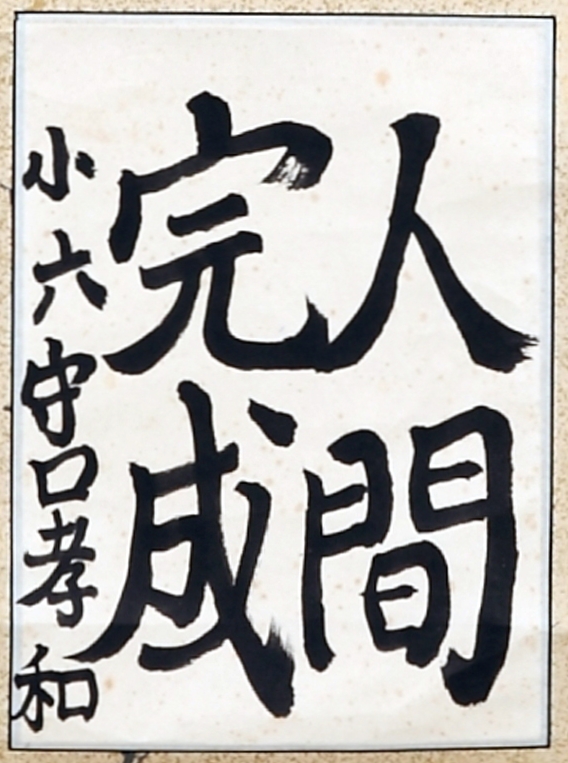 人間
完成
小六守口孝和